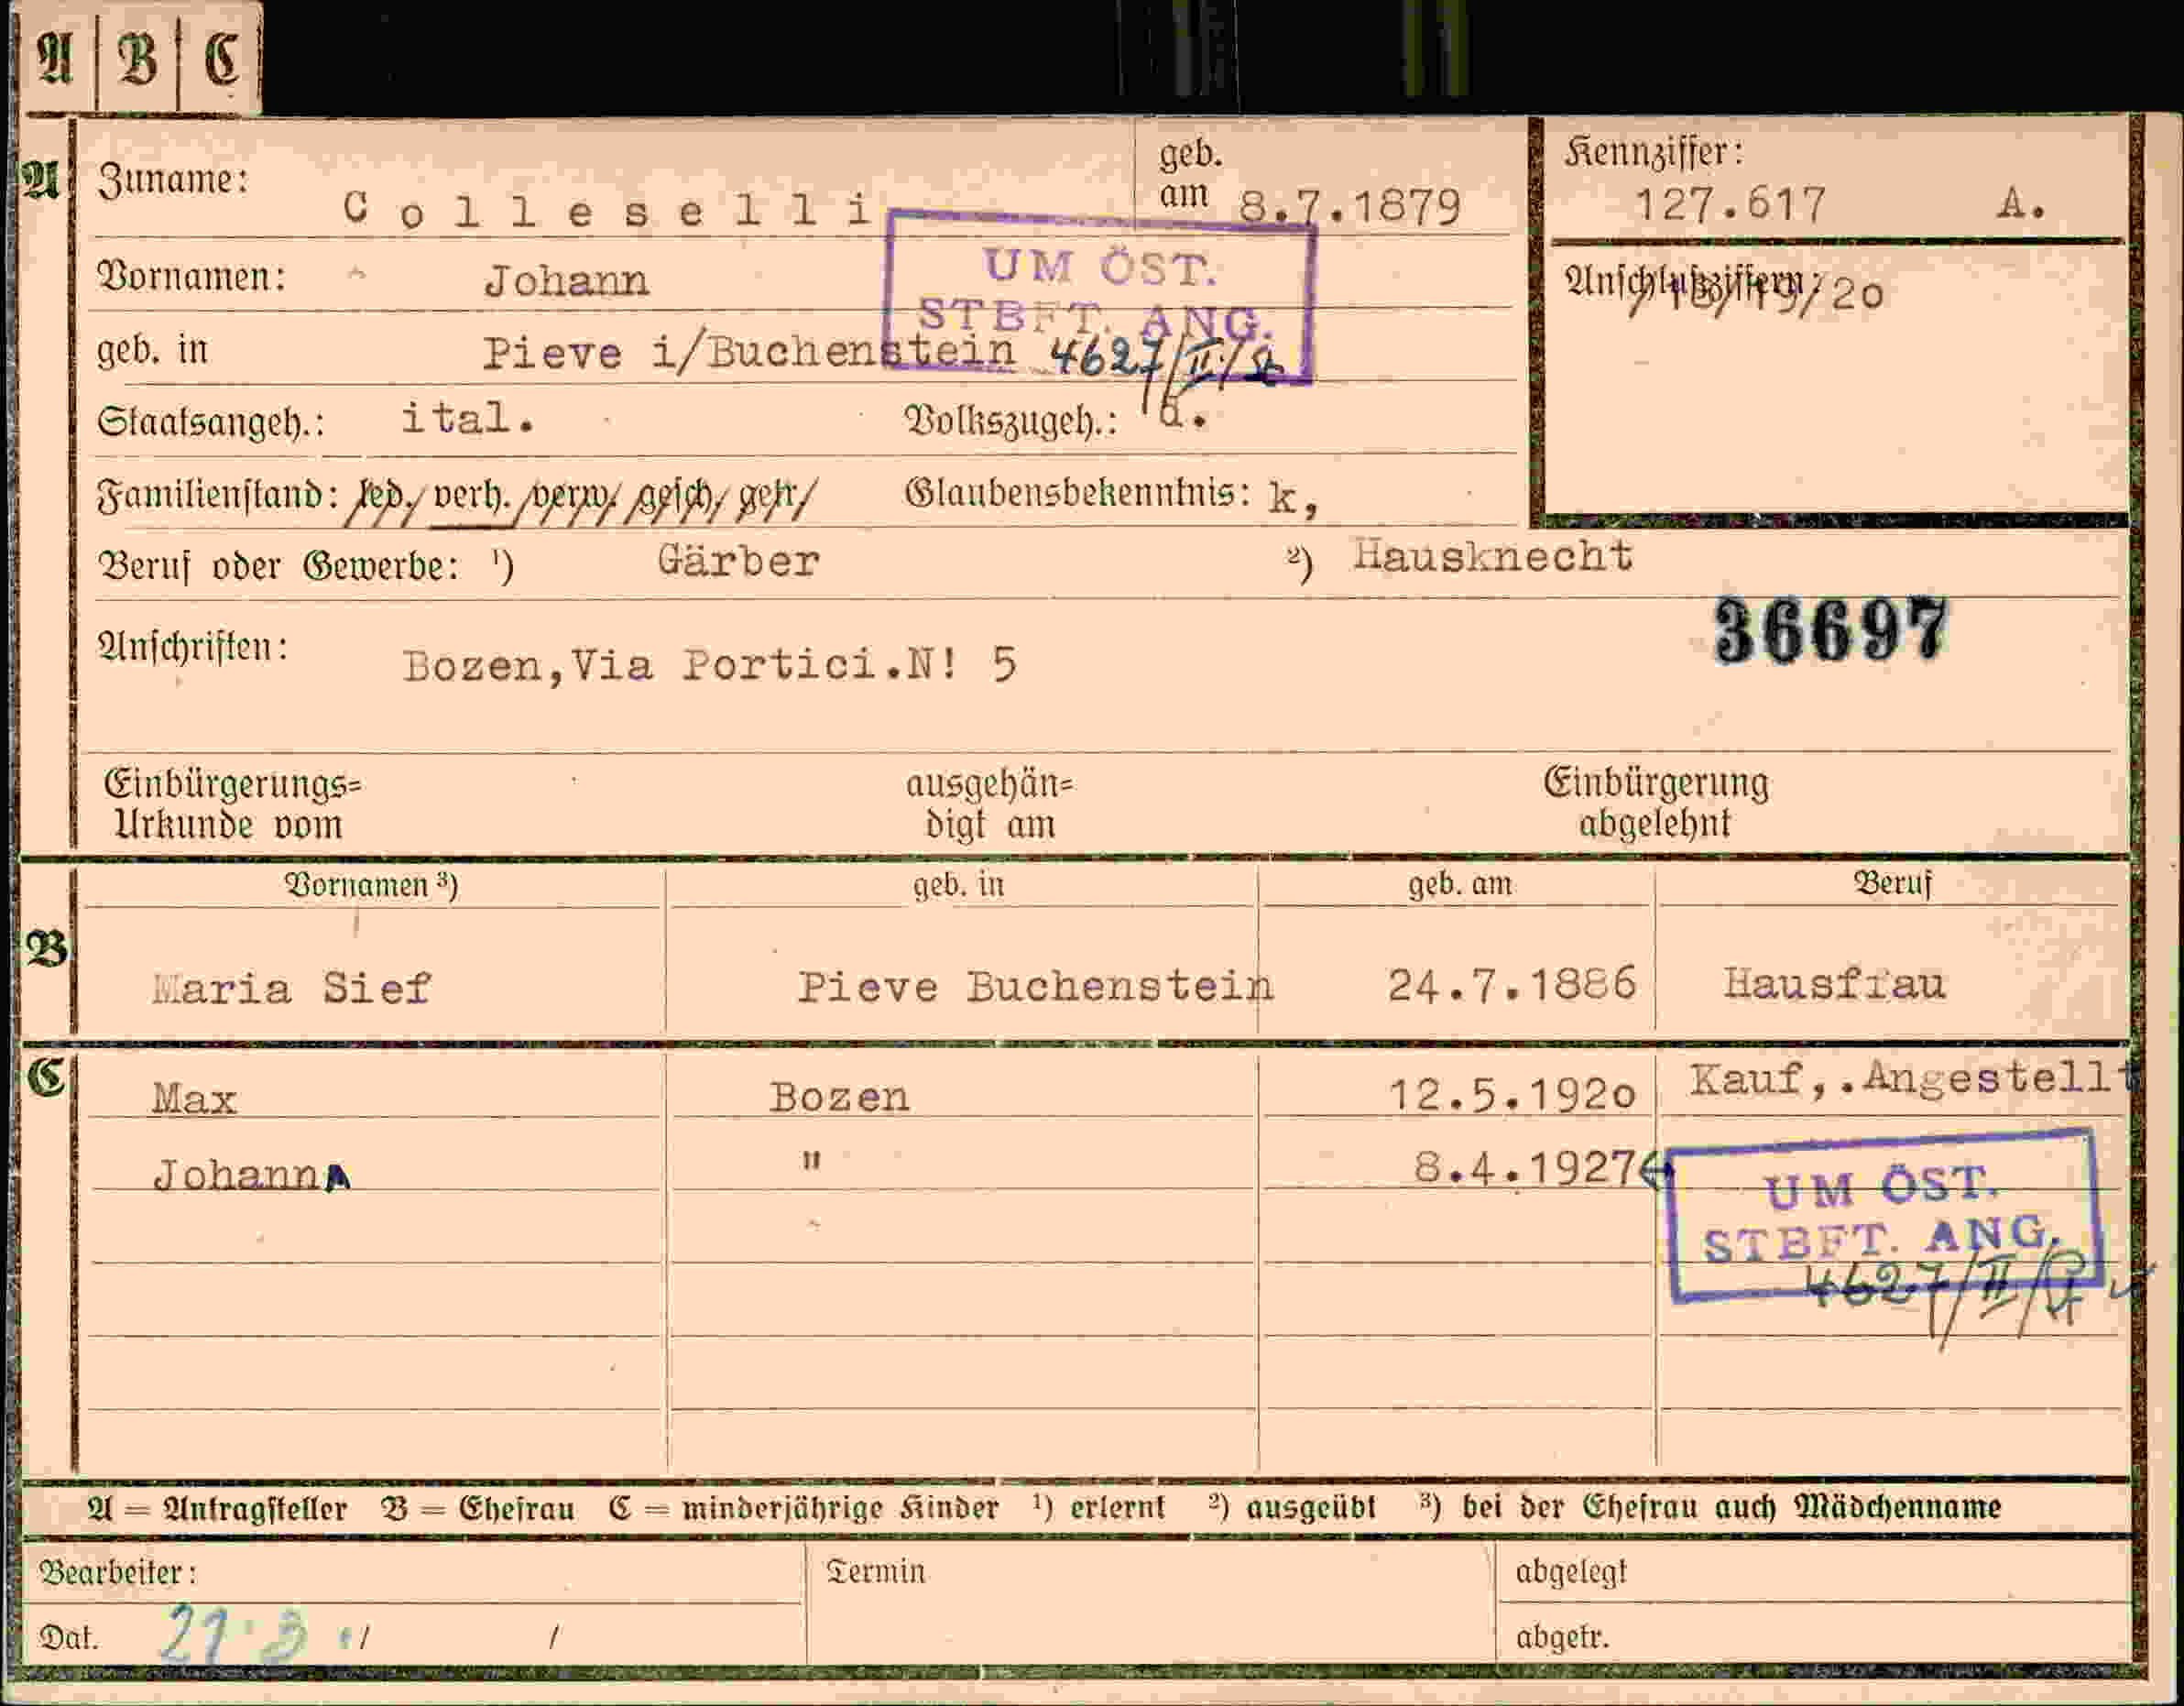 A B C
A Zuname: Colleselli geb. am 8.7.1879
Kennziffer: 127.617 A.
UM ÖST.
STBFT. ANG.
4627/II/
Vornamen: Johann
Anschlußziffern: 20
geb. in Pieve i/Buchenstein
Staatsangeh.: ital. Volkszugeh.: d.
Familienstand: led. verh. verw. gesch. getr. Glaubensbekenntnis: k,
Beruf oder Gewerbe: ¹) Gärber ²) Hausknecht
36697
Anschriften: Bozen,Via Portici.N! 5
Einbürgerungs= Urkunde vom
ausgehän= digt am
Einbürgerung abgelehnt
Vornamen ³) geb. in geb. am Beruf
B Maria Sief Pieve Buchenstein 24.7.1886 Hausfrau
C Max Bozen 12.5.1920 Kauf,.Angestellt
JohannA " 8.4.1927
UM ÖST.
STBFT. ANG.
4627/II/
A = Antragsteller B = Ehefrau C = minderjährige Kinder ¹) erlernt ²) ausgeübt ³) bei der Ehefrau auch Mädchenname
Bearbeiter: Termin abgelegt
Dat. / / abgetr.